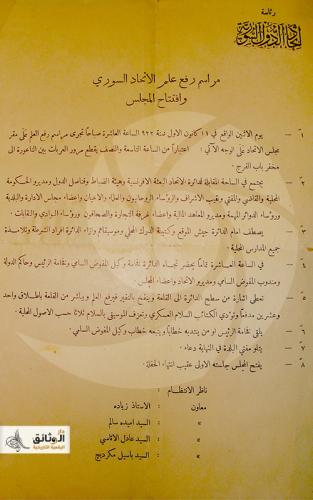 رئاسة
اتحاد الدول السورية
مراسم رفع علم الاتحاد السوري
وافتتاح المجلس
١ – يوم الاثنين الواقع في ١١ كانون الاول سنة ٩٢٢ الساعة العاشرة صباحاً تجري مراسم رفع العلم على مقر
مجلس الاتحاد على الوجه الآتي : اعتباراً من الساعة التاسعة والنصف يقطع مرور العربات بين الناعورة الى
مخفر باب الفرج .
٢ – يجتمع في الساحة المقابلة لدائرة الاتحاد البعثة الافرنسية وهيئة الضباط وقناصل الدول ومديرو الحكومة
الملكية والقاضي والمفتي ونقيب الاشراف والرؤساء الروحانيون والعلماء والاعيان واعضاء مجلس الادارة والبلدية
ورؤساء الدوائر المهمة ومديرو المعاهد المالية واعضاء غرفة التجارة والصحافيون ورؤساء النوادي والنقابات .
٣ – يصطف امام الدائرة جيش الموقع وكتيبة الدرك المحلي وموسيقاهم وازاء الدائرة افراد الشرطة وتلامذة
جميع المدارس المحلية .
٤ – في الساعة العاشرة تماماً يحضر تجاه الدائرة فخامة وكيل المفوض السامي وفخامة الرئيس وحاكم الدولة
ومندوب المفوض السامي ومديرو الاتحاد واعضاء المجلس
٥ – تعطى اشارة من سطح الدائرة الى القلعة وينفخ بالنفير فيرفع العلم ويباشر من القلعة باطلاق واحد
وعشرين مدفعاً وتؤدي الكتائب السلام العسكري وتعزف الموسيقى بالسلام ثلاثا حسب الاصول المحلية .
٦ – يلقي فخامة الرئيس او من ينتدبه خطاباً ويتبعه خطاب وكيل المفوض السامي .
٧ – يتلو مفتي البلدة في النهاية دعاء .
٨ – يفتح المجلس جلسته الاولى عقيب انتهاء الحفلة .
ناظر الانتظام :
معاون : الاستاذ زياده
» السيد اميده سالم
» السيد عادل الاتاسي
» السيد باسيل مكرديج
دار
الوثائق
الرقمية التاريخية